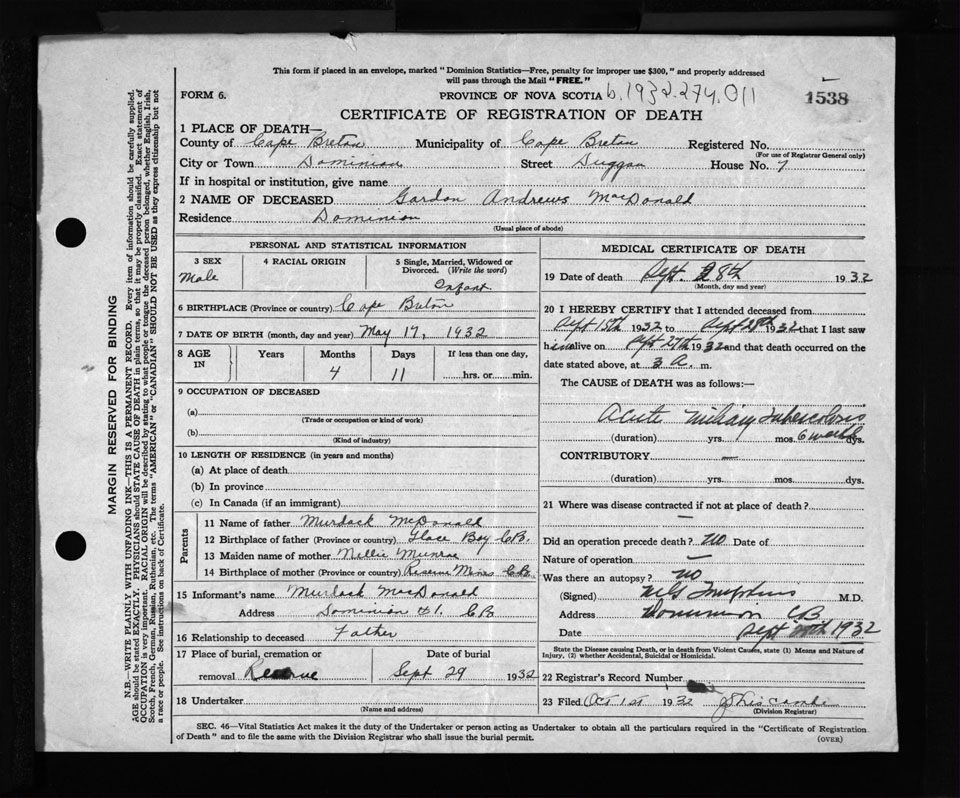 This form if placed in an envelope, marked "Dominion Statistics—Free, penalty for improper use $300," and properly addressed
will pass through the Mail "FREE."
FORM 6. PROVINCE OF NOVA SCOTIA b.1932.274.011 1538
CERTIFICATE OF REGISTRATION OF DEATH
1 PLACE OF DEATH—
County of Cape Breton Municipality of Cape Breton Registered No.
(For use of Registrar General only)
City or Town Dominion Street Duggan House No. 7
If in hospital or institution, give name
2 NAME OF DECEASED Gordon Andrews MacDonald
Residence Dominion
(Usual place of abode)
PERSONAL AND STATISTICAL INFORMATION
3 SEX 4 RACIAL ORIGIN 5 Single, Married, Widowed or
Divorced. (Write the word)
Male Infant
6 BIRTHPLACE (Province or country) Cape Breton
7 DATE OF BIRTH (month, day and year) May 17, 1932
8 AGE IN Years Months Days If less than one day,
4 11 hrs. or min.
9 OCCUPATION OF DECEASED
(a)
(Trade or occupation or kind of work)
(b)
(Kind of industry)
10 LENGTH OF RESIDENCE (in years and months)
(a) At place of death
(b) In province
(c) In Canada (if an immigrant)
Parents
11 Name of father Murdock McDonald
12 Birthplace of father (Province or country) Glace Bay C.B.
13 Maiden name of mother Nellie Munroe
14 Birthplace of mother (Province or country) Reserve Mines C.B.
15 Informant's name Murdock MacDonald
Address Dominion #1. C.B.
16 Relationship to deceased Father
17 Place of burial, cremation or Date of burial
removal Reserve Sept 29 1932
18 Undertaker
(Name and address)
MEDICAL CERTIFICATE OF DEATH
19 Date of death Sept. 28th 1932
(Month, day and year)
20 I HEREBY CERTIFY that I attended deceased from
Sept 15th 1932 to Sept 28th 1932 that I last saw
him alive on Sept 27th 1932 and that death occurred on the
date stated above, at 3 A. m.
The CAUSE of DEATH was as follows:—
Acute Miliary Tuberculosis
(duration) yrs. mos. 6 weeks dys.
CONTRIBUTORY —
(duration) yrs. mos. dys.
21 Where was disease contracted if not at place of death?
—
Did an operation precede death? No Date of
Nature of operation —
Was there an autopsy? no
(Signed) M.D.
Address Dominion CB
Date Sept 1932
State the Disease causing Death, or in death from Violent Causes, state (1) Means and Nature of
Injury, (2) whether Accidental, Suicidal or Homicidal.
22 Registrar's Record Number
23 Filed Oct 1st 1932
(Division Registrar)
SEC. 46—Vital Statistics Act makes it the duty of the Undertaker or person acting as Undertaker to obtain all the particulars required in the "Certificate of Registration
of Death" and to file the same with the Division Registrar who shall issue the burial permit. (OVER)
MARGIN RESERVED FOR BINDING
N.B.—WRITE PLAINLY WITH UNFADING INK—THIS IS A PERMANENT RECORD. Every item of information should be carefully supplied.
AGE should be stated EXACTLY. PHYSICIANS should STATE CAUSE OF DEATH in plain terms, so that it may be properly classified. Exact statement of
OCCUPATION is very important. RACIAL ORIGIN will be described by stating to what people or tongue the deceased person belonged, whether English, Irish,
Scotch, French, German, Russian, Ruthenian, etc. The terms "AMERICAN" or "CANADIAN" SHOULD NOT BE USED as they express citizenship but not
a race or people. See instructions on back of Certificate.